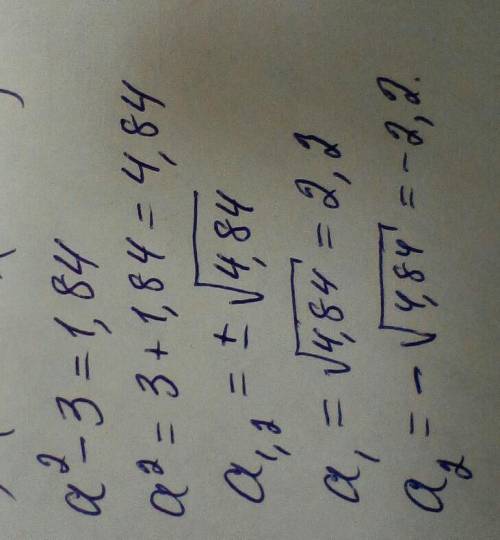 a² - 3 = 1,84
a² = 3 + 1,84 = 4,84
a₁,₂ = ± √4,84
a₁ = √4,84 = 2,2
a₂ = - √4,84 = -2,2.